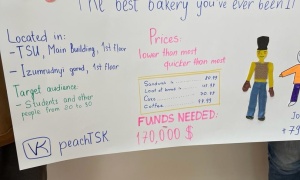 The best bakery you've ever been in
Located in:
- TSU, Main Building, 1st floor
- Izumrudnyi gorod, 1st floor
Target audience
- Students and other
people from 20 to 30
Prices:
lower than most
quicker than most
Sandwich
Loaf of bread
Cake
Coffee
FUNDS NEEDED:
170,000 $
peachTSK